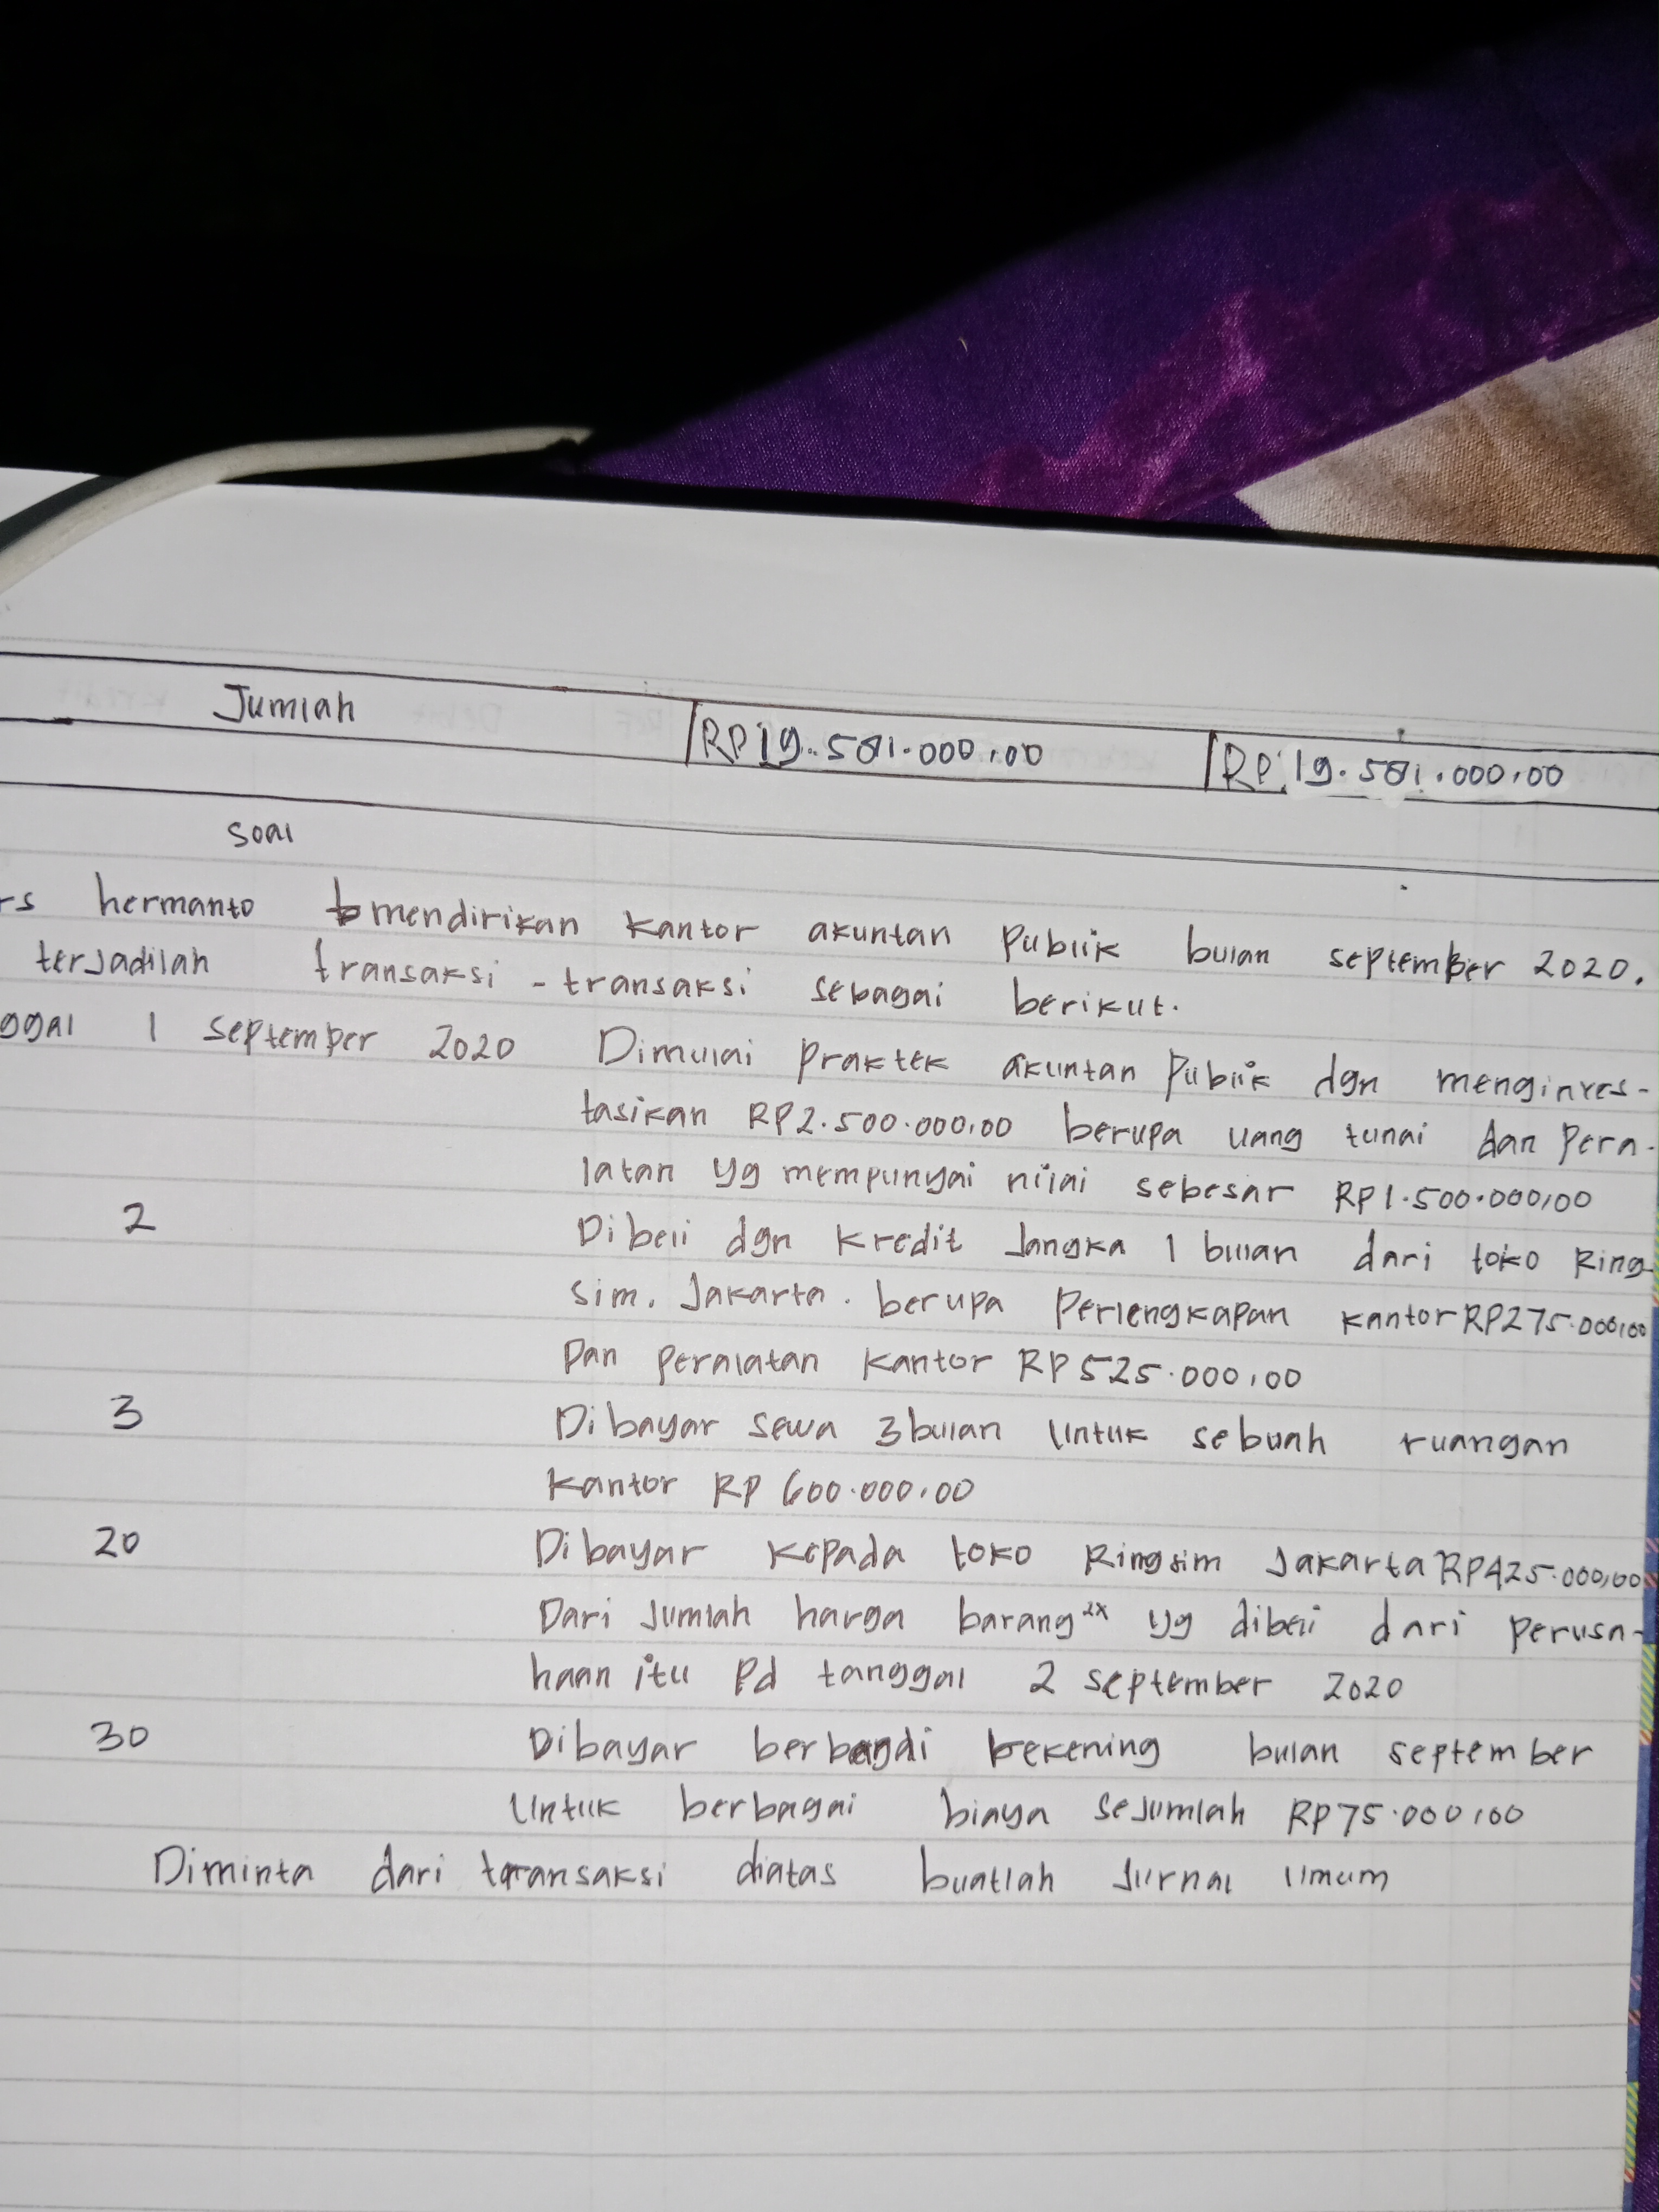 Jumlah RP 19.581.000,00 RP 19.581.000,00
soal
rs hermanto mendirikan kantor akuntan Publik bulan september 2020.
terjadilah transaksi - transaksi sebagai berikut.
ggal 1 september 2020 Dimulai praktek akuntan Publik dgn menginves-
tasikan RP2.500.000,00 berupa uang tunai dan Pera-
latan yg mempunyai nilai sebesar RP1.500.000,00
2 Dibeli dgn kredit Jangka 1 bulan dari toko Ring-
sim. Jakarta. berupa Perlengkapan kantor RP275.000,00
Dan peralatan kantor RP 525.000,00
3 Dibayar sewa 3 bulan untuk sebuah ruangan
kantor RP 600.000,00
20 Dibayar kepada toko Ringsim Jakarta RP425.000,00
Dari Jumlah harga barang2x yg dibeli dari perusa-
haan itu Pd tanggal 2 september 2020
30 Dibayar berbagai rekening bulan september
untuk berbagai biaya sejumlah RP75.000,00
Diminta dari transaksi diatas buatlah Jurnal umum